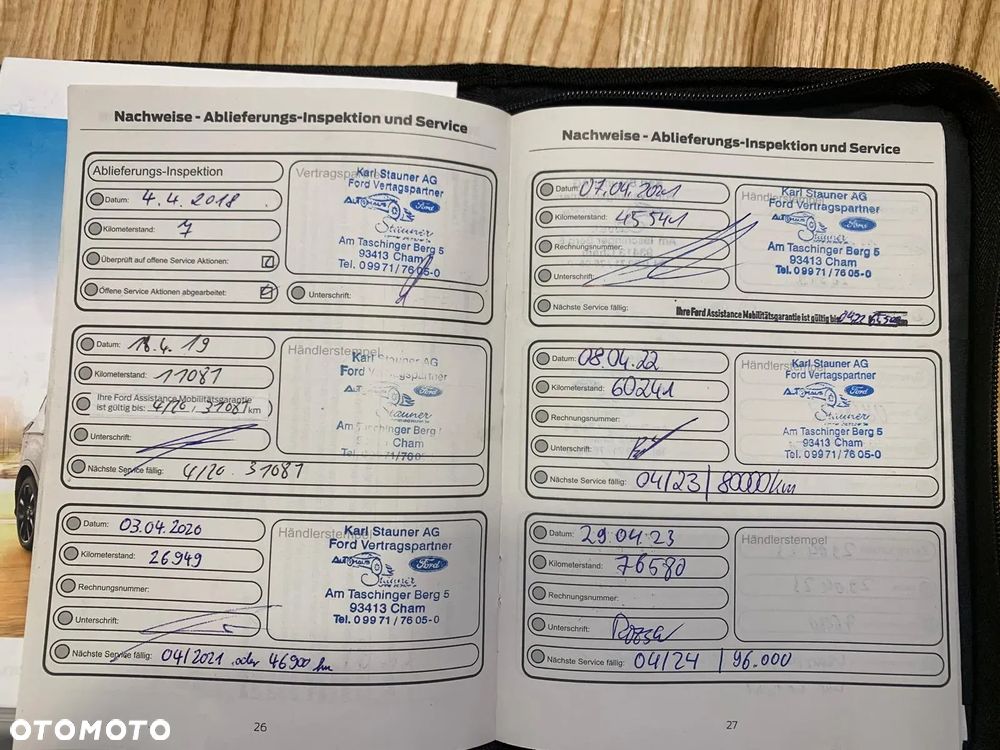 Nachweise - Ablieferungs-Inspektion und Service
Ablieferungs-Inspektion
Datum: 4.4.2018
Kilometerstand: 7
Überprüft auf offene Service Aktionen:
Offene Service Aktionen abgearbeitet:
Vertragspartner
Karl Stauner AG
Ford Vertagspartner
AUTOHAUS Ford
Stauner
Am Taschinger Berg 5
93413 Cham
Tel. 09971/7605-0
Unterschrift:
Datum: 18.4.19
Kilometerstand: 11081
Ihre Ford Assistance Mobilitätsgarantie
ist gültig bis: 4/20, 31081 km)
Unterschrift:
Nächste Service fällig: 4/20 31081
Händlerstempel
Karl Stauner AG
Ford Vertagspartner
Ford
Stauner
Am Taschinger Berg
93413 Cham
71/7605
Datum: 03.04.2020
Kilometerstand: 26949
Rechnungsnummer:
Unterschrift:
Nächste Service fällig: 04/2021 oder 46900 km
Händlerstempel
Karl Stauner AG
Ford Vertagspartner
AUTOHAUS Ford
Stauner
Am Taschinger Berg 5
93413 Cham
Tel. 09971/7605-0
26
Nachweise - Ablieferungs-Inspektion und Service
Datum: 07.04.2021
Kilometerstand: 45541
Rechnungsnummer:
Unterschrift:
Nächste Service fällig:
Ihre Ford Assistance Mobilitätsgarantie ist gültig bis 04.22
Händlerstempel
Karl Stauner AG
Ford Vertagspartner
AUTOHAUS Ford
Stauner
Am Taschinger Berg 5
93413 Cham
Tel. 09971/7605-0
Datum: 08.04.22
Kilometerstand: 60241
Rechnungsnummer:
Unterschrift:
Nächste Service fällig: 04/23 | 80000 km
Händlerstempel
Karl Stauner AG
Ford Vertagspartner
AUTOHAUS Ford
Stauner
Am Taschinger Berg 5
93413 Cham
Tel. 09971/7605-0
Datum: 29.04.23
Kilometerstand: 76580
Rechnungsnummer:
Unterschrift:
Nächste Service fällig: 04/24 | 96.000
Händlerstempel
27
OTOMOTO